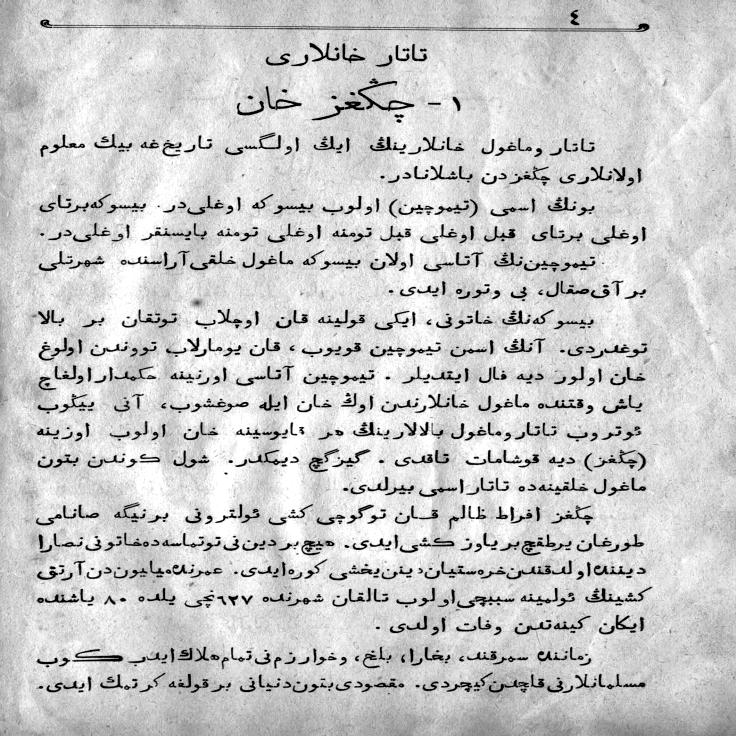 ٤
تاتار خانلاری
١- چڭغز خان
تاتار وماغول خانلارینڭ ایڭ اولگسی تاریخ‌غه بیك معلوم
اولانلاری چڭغزدن باشلانادر.
بونڭ اسمی (تیموچین) اولوب بیسوكه اوغلی‌در. بیسوكه‌برتای
اوغلی برتای قبل اوغلی قبل تومنه اوغلی تومنه بایسنقر اوغلی‌در.
تیموچین‌نڭ آتاسی اولان بیسوكه ماغول خلقی آراسنده شهرتلی
بر آق‌صقال، بی وتوره ایدی.
بیسوكه‌نڭ خاتونی، ایكی قولینه قان اوچلاب توتقان بر بالا
توغدردی. آنڭ اسمن تیموچین قویوب، قان یومارلاب تووندن اولوغ
خان اولور دیه فال ایتدیلر. تیموچین آتاسی اورنینه حكمدار اولغاچ
یاش وقتنده ماغول خانلارندن اوڭ خان ایله صوغشوب، آنی ییڭوب
ئوتروب تاتار وماغول بالالارینڭ هر قایوسینه خان اولوب اوزینه
(چڭغز) دیه قوشامات تاقدی. گیزگچ دیمكدر. شول كوندن بتون
ماغول خلقینه‌ده تاتار اسمی بیرلدی.
چڭغز افراط ظالم قان توگوچی كشی ئولترونی برنیگه صانامی
طورغان یرطقچ بر یاوز كشی ایدی. هیچ بر دین‌نی توتماسه‌ده خاتونی نصارا
دیننده اولدقندن خرستیان دینن یخشی كوره ایدی. عمرنده میلیون‌دن آرتق
كشینڭ ئولمینه سببچی اولوب تالقان شهرنده ٦٢٧نچی یلده ٨٠ یاشنده
ایكان كینه‌تدن وفات اولدی.
زماننده سمرقند، بخارا، بلخ، وخوارزم‌نی تمام هلاك ایدب كوب
مسلمانلارنی قاچدن كیچردی. مقصودی بتون دنیانی بر قولغه كرتمك ایدی.